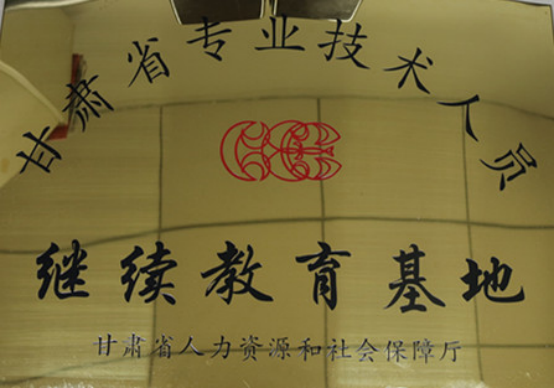 甘肃省专业技术人员
继续教育基地
甘肃省人力资源和社会保障厅